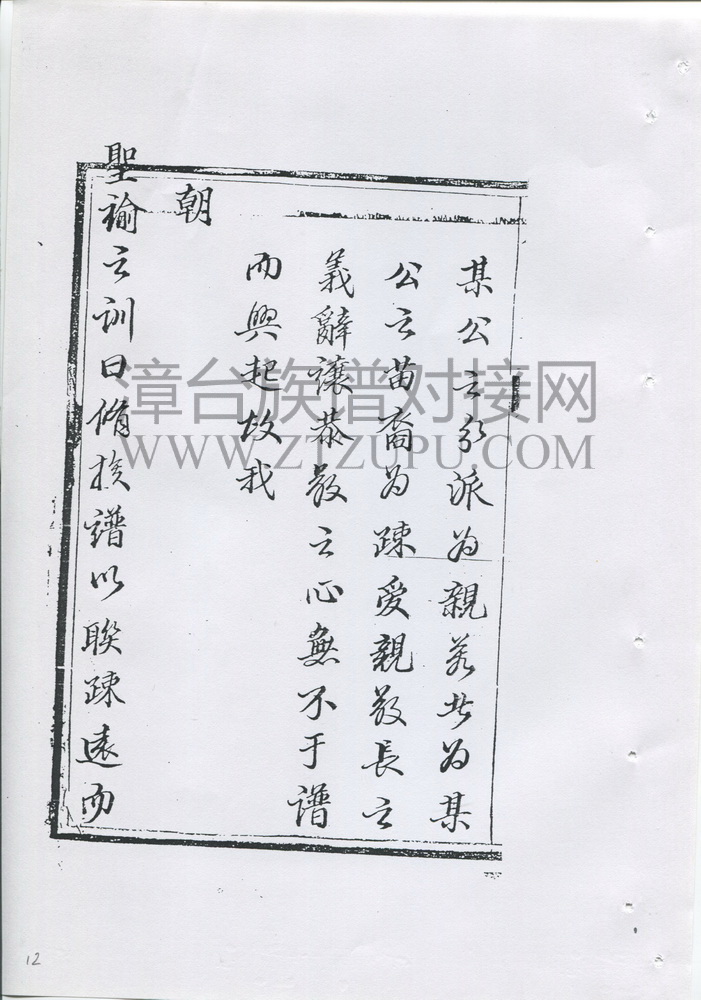 某公之分派为親若此为某
公之苗裔为踈爱親敬長之
義辭讓恭敬之心無不于譜
而興起故我
朝
聖諭之訓曰脩族譜以聫踈遠而
漳台族谱对接网
WWW.ZTZUPU.COM
12